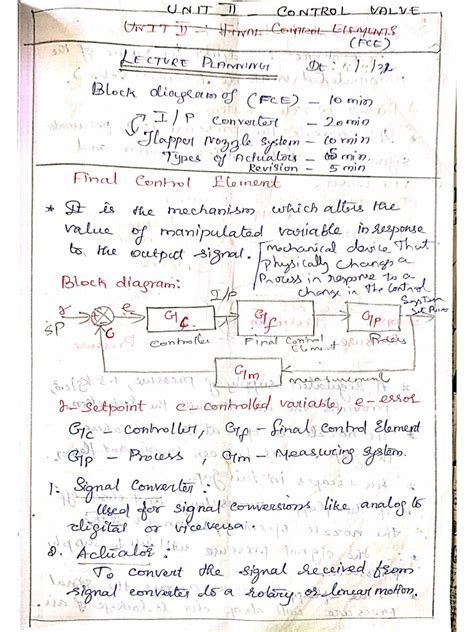 UNIT II - CONTROL VALVE
UNIT II - FINAL CONTROL ELEMENTS
(FCE)
LECTURE PLANNING Dt:
Block diagram of (FCE) - 10 min
I/P converter - 20 min
Flapper Nozzle system - 10 min
Types of Actuators - 5 min.
Revision - 5 min
Final Control Element
* It is the mechanism which alters the
value of manipulated variable in response
to the output signal. [mechanical device That
physically changes a
Process in response to a
change in the control
System
Set Point
Block diagram:
I/P
r e Gc Gf Gp
SP C controller Final Control Element Process
Gm
measurement
r - Setpoint c - controlled variable, e - error
Gc - controller, Gf - final control Element
Gp - Process, Gm - Measuring system.
1. Signal Converter:
Used for signal conversions like analog to
digital or viceversa.
2. Actuator:
To convert the signal received from
signal converter to a rotary or linear motion.